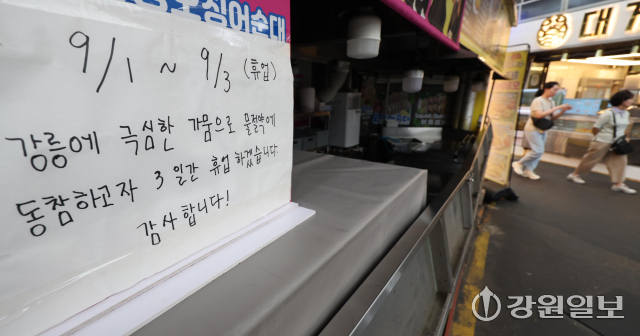 오징어순대
9/1 ~ 9/3 (휴업)
강릉에 극심한 가뭄으로 물절약에
동참하고자 3일간 휴업 하겠습니다.
감사합니다!
대게
강원일보